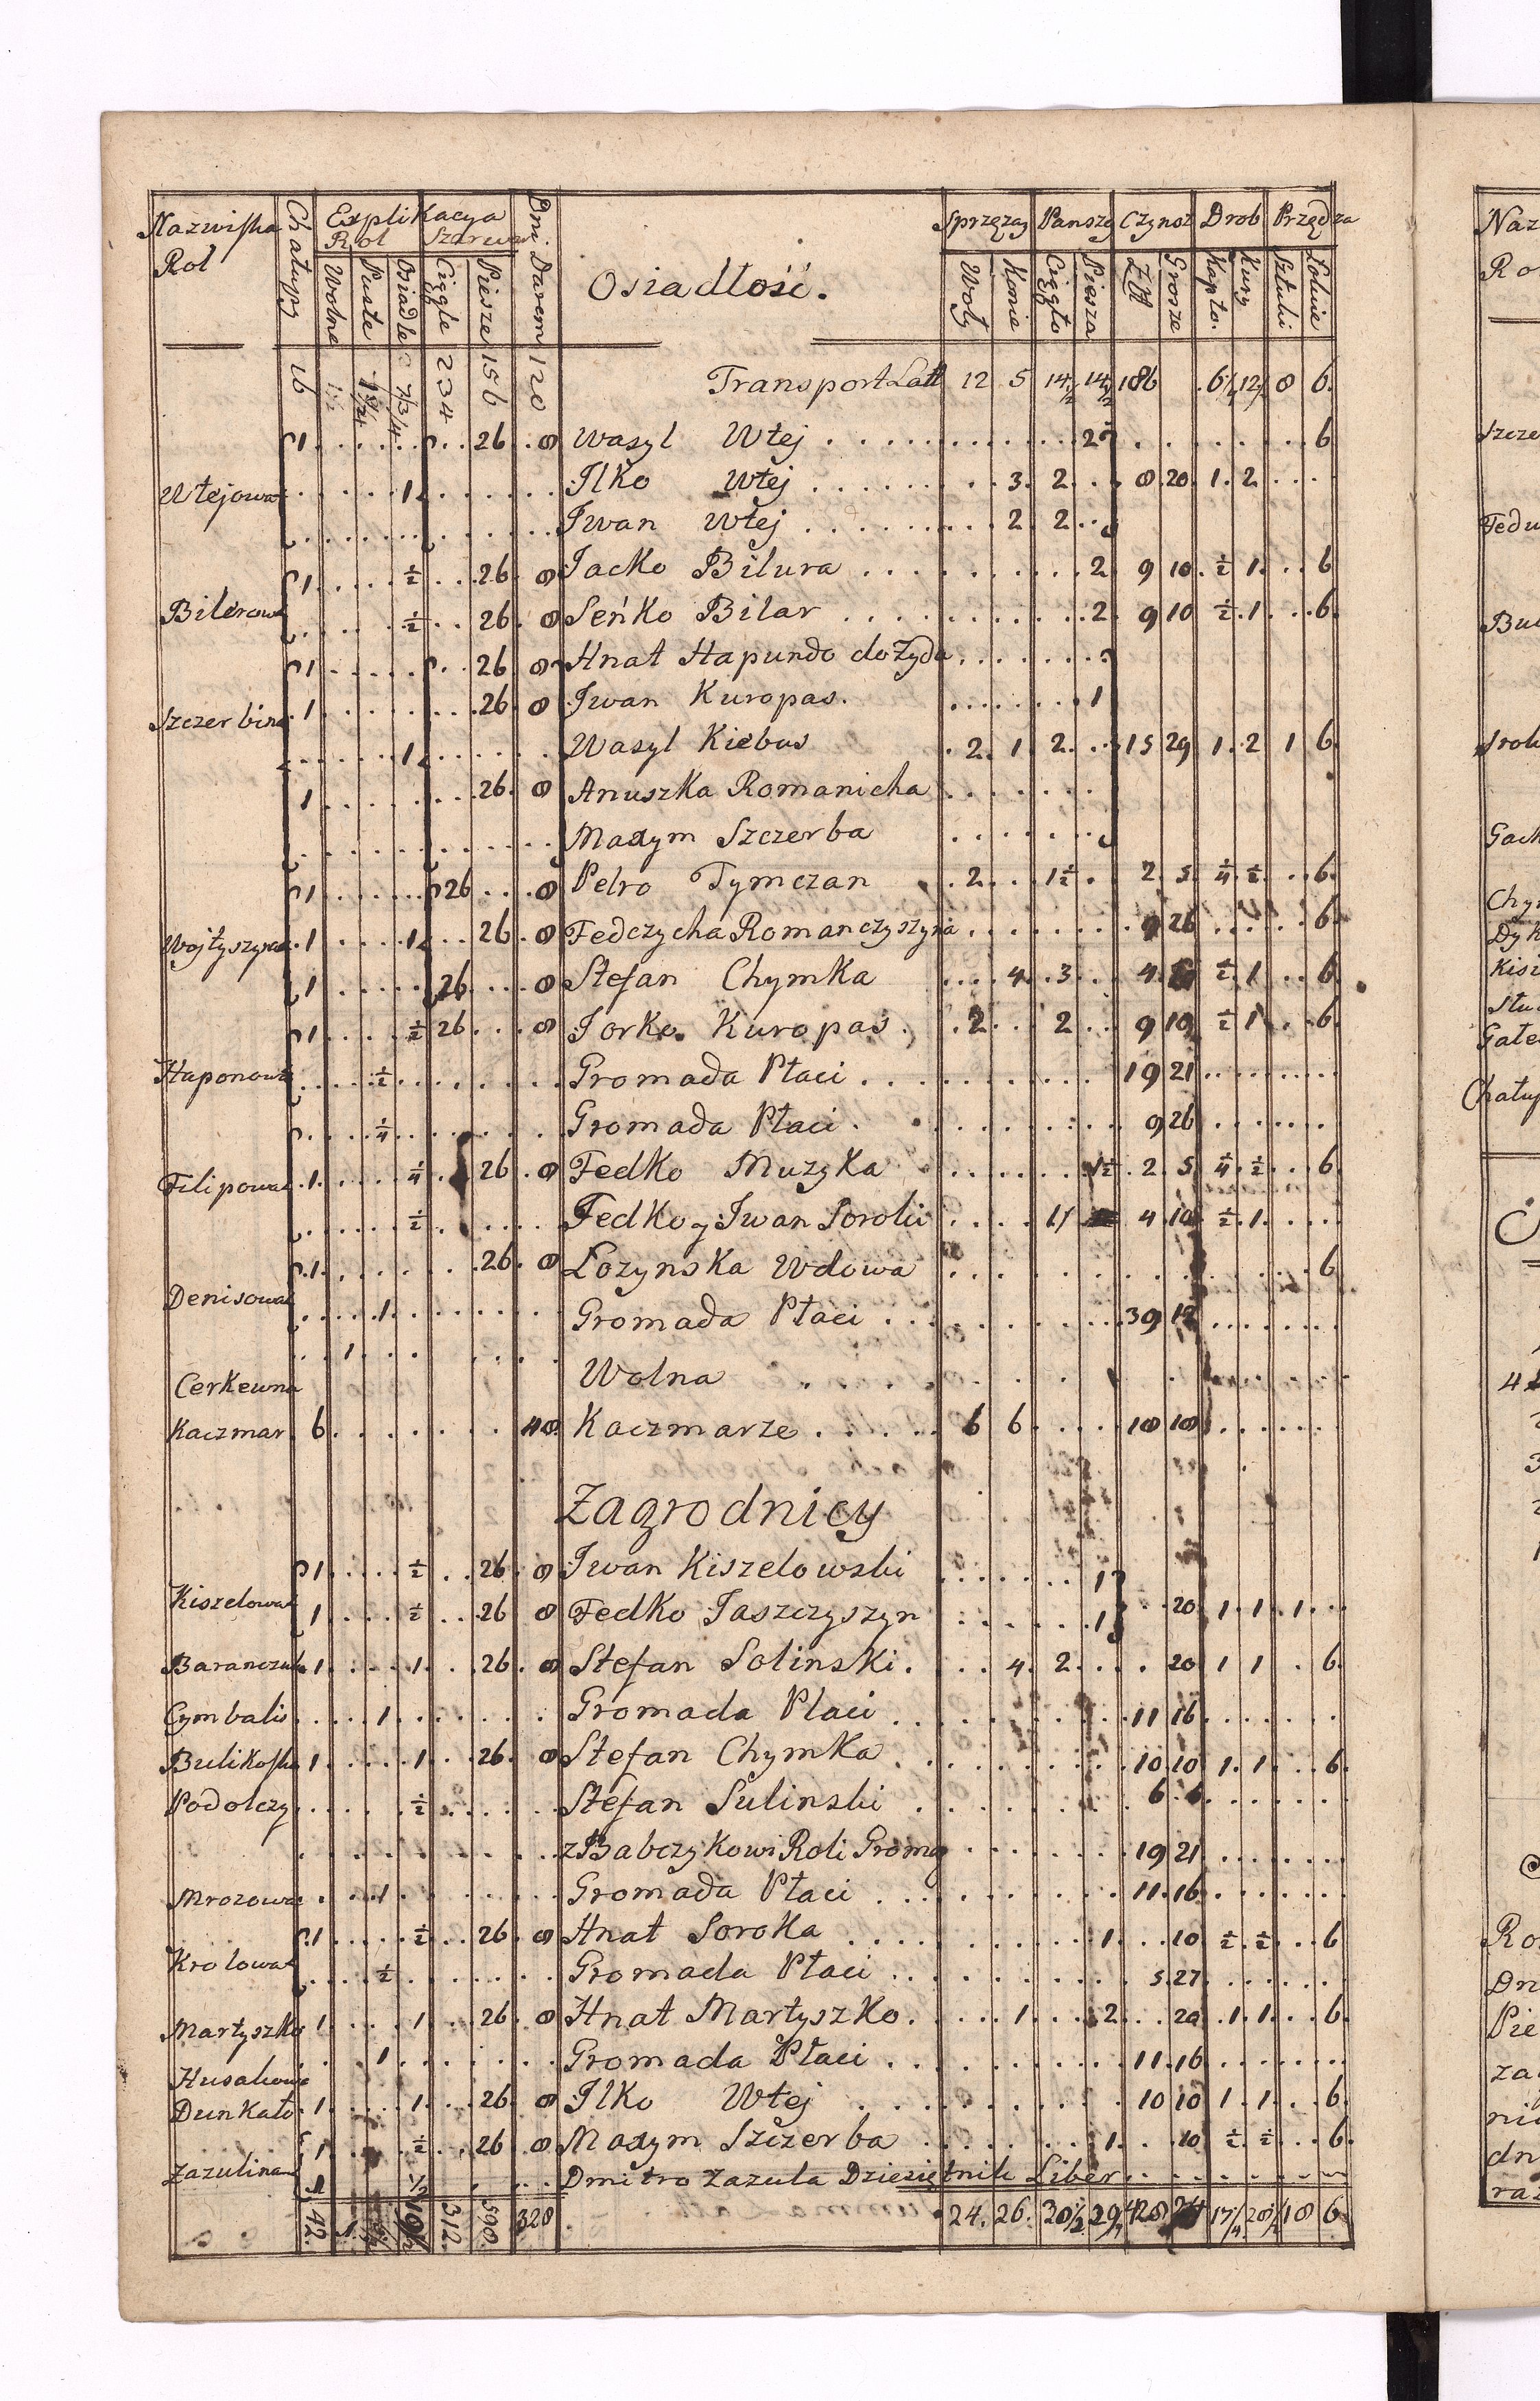 Nazwiska Rol Chałupy Explikacya Rol Szarwar. Dni. Darem Osiadłość. Sprzęzay Pansz Czynsz Drob Przędza
Wolne Puste Osiadłe Ciągłe Piesze Woły Konie Ciągło Piesza Złł Grosze Kapło. Kury Sztuki Łokcie
16 234 156 120 Transport Latt 12 5 14½ 14½ 186 . 6¼ 12½ 8 6
1 26 8 Wasyl Włej 2 6
Włejowa 1 Ilko Włej 3 2 8 20 1 2
Iwan Włej 2 2
1 ½ 26 8 Jacko Bilura 2 9 10 ½ 1 6
½ 26 8 Seńko Bilar 2 9 10 ½ 1 6
1 26 8 Hnat Hapundo do Żyda
Szczerbina 1 26 8 Iwan Kuropas. 1
1 Wasyl Kiebus 2 1 2 15 29 1 2 1 6
1 26 8 Anuszka Romanicha
Maxym Szczerba
1 26 8 Petro Tymczan 2 1½ 2 5 ¼ ½ 6
1 1 26 8 Fedczycha Romanczyszyna 9 26 6
1 26 8 Stefan Chymka 4 3 4 ½ 1 6
1 ½ 26 8 Jorko Kuropas 2 2 9 10 ½ 1 6
Haponowa ½ Gromada Płaci 19 21
¼ Gromada Płaci 9 26
Filipowa 1 ¼ 26 8 Fedko Muzyka 1½ 2 5 ¼ ½ 6
½ Fedko y Iwan Soroki 4 10 ½ 1
1 26 8 Łozynska Wdowa 6
Denisowa 1 Gromada Płaci 39 12
1
Cerkewna Wolna
Kaczmar 6 48 Kaczmarze 6 6 18 18
Zagrodnicy
1 ½ 26 8 Iwan Kiszelowski 1
Kiszelowa 1 ½ 26 8 Fedko Jaszczyszyn 1 20 1 1 1
1 1 26 8 Stefan Solinski 4 2 20 1 1 6
Cymbalis 1 Gromada Płaci 11 16
1 1 26 8 Stefan Chymka 10 10 1 1 6
Podolczy ½ Stefan Sulinski 6 6
z Babczykowi Roli Grom 19 21
Mrozowa 1 Gromada Płaci 11 16
1 ½ 26 8 Hnat Soroka 1 10 ½ ½ 6
Krolowa ½ Gromada Płaci 5 27
Martyszko 1 1 26 8 Hnat Martyszko 1 2 20 1 1 6
1 Gromada Płaci 11 16
Husakowa
Dunkało 1 1 26 8 Ilko Włej 10 10 1 1 6
1 ½ 26 8 Maxym Szczerba 1 10 ½ ½ 6
Zazulina 1 ½ Dmitro Zazula Dziesiętnik Liber
42 312 598 328 24 26 6